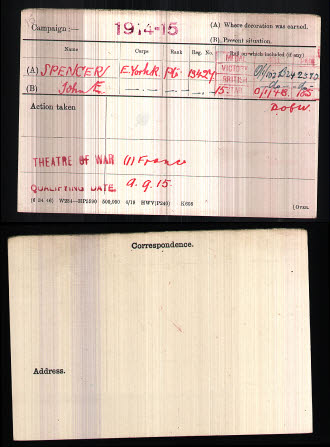 Campaign :— 1914-15
(A) Where decoration was earned.
(B) Present situation.
Name Corps Rank Reg. No. Roll on which included (if any)
(A) SPENCER E. York. R. Pte 13427
VICTORY
BRITISH
STAR
(B) John E. — — — — 15.
Action taken
D of W.
THEATRE OF WAR (1) France
QUALIFYING DATE 9.9.15.
(6 34 46) W234—HP5590 500,000 4/19 HWV(P240) K608
Correspondence.
Address.